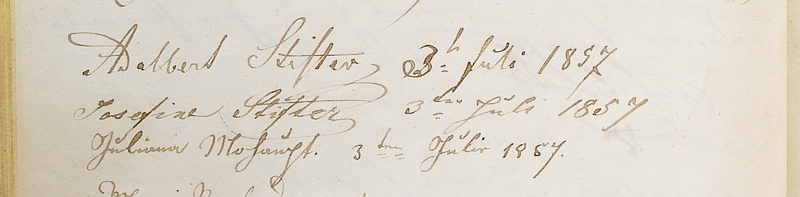 Adalbert Stifter 3t Juli 1857
Josefine Stifter 3ten Juli 1857
Juliana Mohaupt. 3ten Julie 1857.